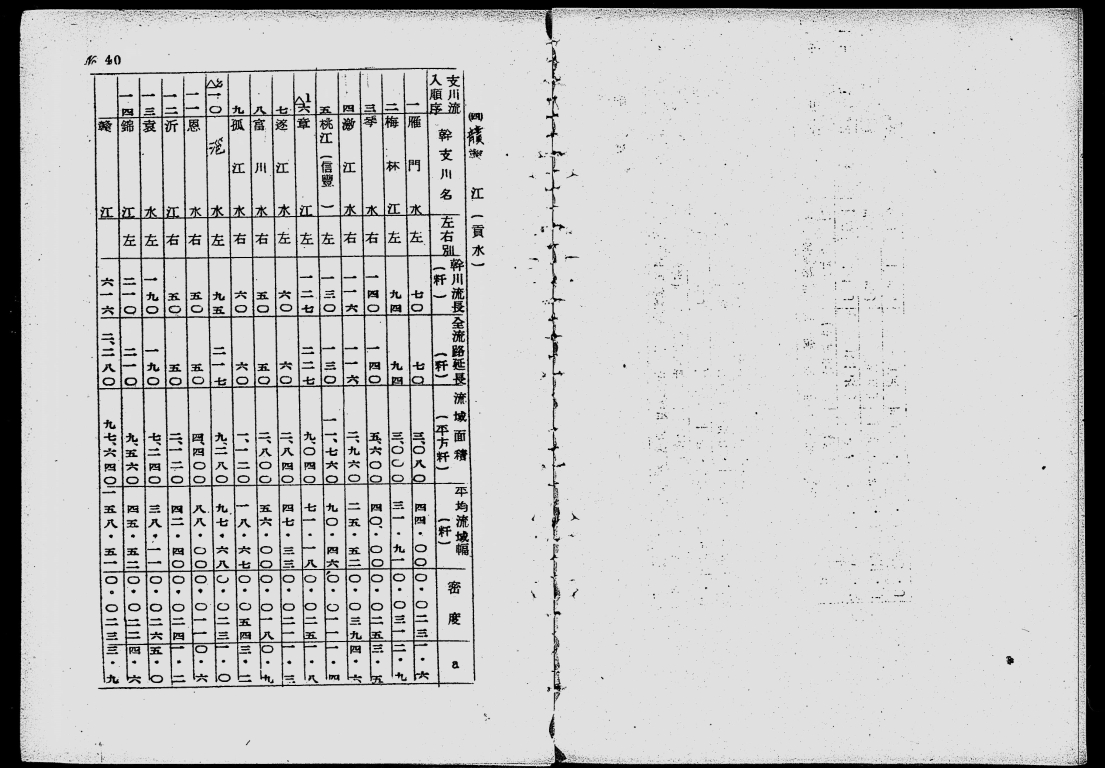 No 40
(四) 贛 江(貢水)
支川流入順序 幹支川名 左右別 幹川流長(粁) 全流路延長(粁) 流域面積(平方粁) 平均流域幅(粁) 密度 a
一 雁門水 左 七〇 七〇 三、〇八〇 四四・〇〇 〇・〇二三 一・六
二 梅林江 左 九四 九四 三、〇〇〇 三一・九一 〇・〇三一 二・九
三 季水 右 一四〇 一四〇 五、六〇〇 四〇・〇〇 〇・〇二五 三・五
四 激江水 右 一一六 一一六 二、九六〇 二五・五二 〇・〇三九 四・六
五 桃江(信豐) 左 一三〇 一三〇 一一、七六〇 九〇・四六 〇・〇一一 一・四
六 章江 左 一二七 二二七 九、〇四〇 七一・一八 〇・〇二五 一・八
七 逐江水 左 六〇 六〇 二、八四〇 四七・三三 〇・〇二一 一・三
八 富川水 右 五〇 五〇 二、八〇〇 五六・〇〇 〇・〇一八 〇・九
九 孤江水 右 六〇 六〇 一、一二〇 一八・六七 〇・〇五四 三・二
一〇 水 左 九五 二一七 九、二八〇 九七・六八 〇・〇二三 一・〇
一一 恩水 右 五〇 五〇 四、四〇〇 八八・〇〇 〇・〇一一 〇・六
一二 沂江 右 五〇 五〇 二、一二〇 四二・四〇 〇・〇二四 一・二
一三 袁水 左 一九〇 一九〇 七、二四〇 三八・一一 〇・〇二六 五・〇
一四 錦江 左 二一〇 二一〇 九、五六〇 四五・五二 〇・〇二二 四・六
贛江 六一六 二、二八〇 九七、六四〇 一五八・五一 〇・〇二三 三・九